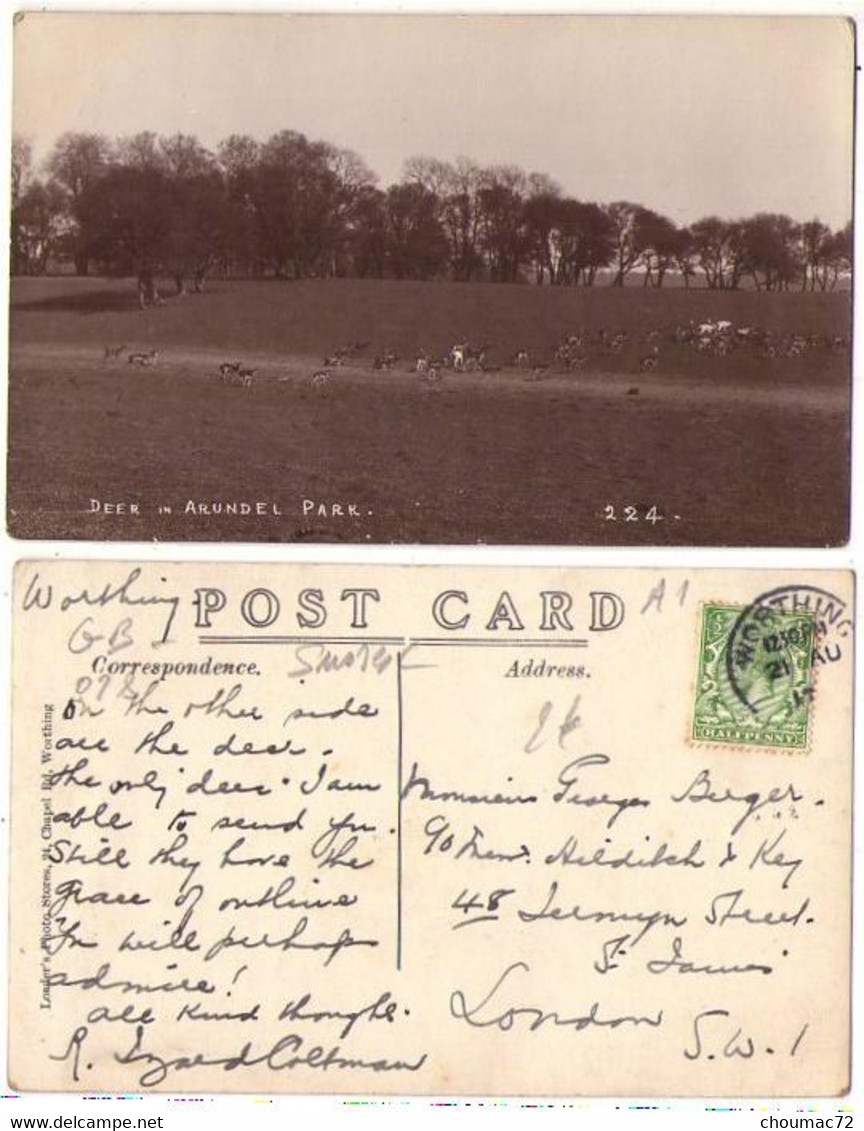 DEER IN ARUNDEL PARK.
224.
Worthing
POST CARD
A1
GB -
Sussex
Correspondence.
Address.
WORTHING
12.30PM
21 AU
HALFPENNY
Louder's Photo Stores, 24, Chapel Rd. Worthing
On the other side
are the deer.
The only deer I am
able to send you.
Still they have the
grace of outline
You will perhaps
admire!
All kind thoughts.
R. Izard Coltman
Monsieur Georges Berger.
Hilditch & Key
48 Jermyn Street.
St James'
London
S.W.1
Delcampe.net
choumac72